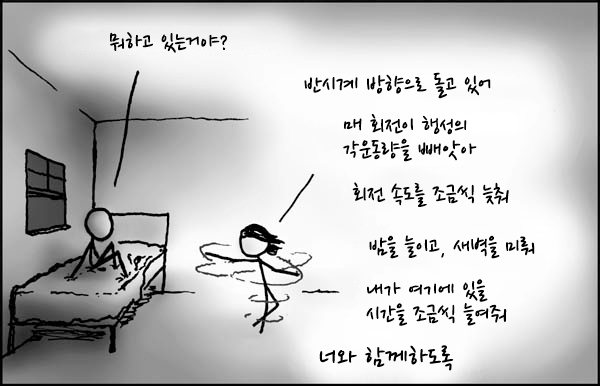 뭐하고 있는거야?
반시계 방향으로 돌고 있어
매 회전이 행성의
각운동량을 빼앗아
회전 속도를 조금씩 늦춰
밤을 늘이고, 새벽을 미뤄
내가 여기에 있을
시간을 조금씩 늘여줘
너와 함께하도록